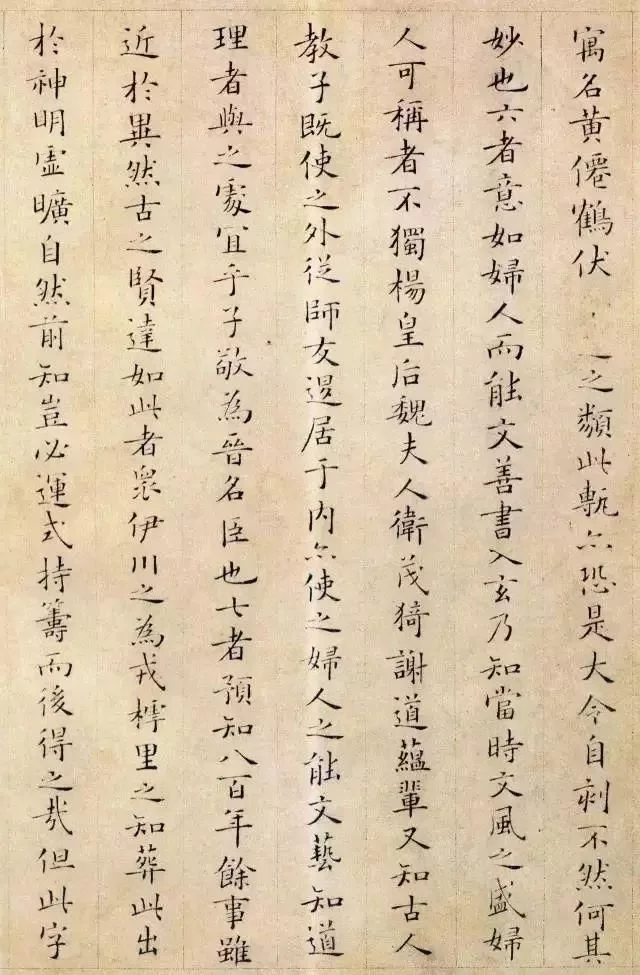 寓名黄僊鶴伏之之類此甎亦恐是大令自刻不然何其
妙也六者意如婦人而能文善書入玄乃知當時文風之盛婦
人可稱者不獨楊皇后魏夫人衛茂猗謝道蘊輩又知古人
教子既使之外從師友退居于内亦使之婦人之能文藝知道
理者與之處宜乎子敬為晉名臣也七者預知八百年餘事雖
近於異然古之賢達如此者衆伊川之為戎樗里之知葬此出
於神明虚曠自然前知豈必運式持籌而後得之哉但此字